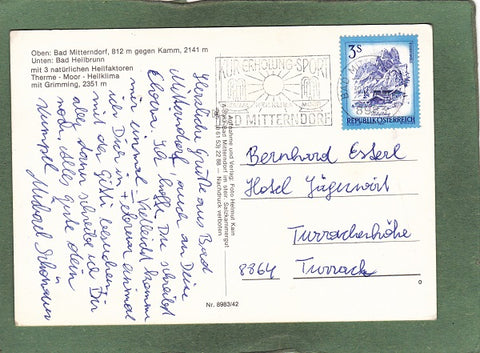 Oben: Bad Mitterndorf, 812 m gegen Kamm, 2141 m
Unten: Bad Heilbrunn
mit 3 natürlichen Heilfaktoren
Therme - Moor - Heilklima
mit Grimming, 2351 m
Herzliche Grüße aus Bad
Mitterndorf, auch an Deine
Eltern! Ich hoffe Du schreibst
mir einmal. Vielleicht komme
ich Dich in
mit der besuchen
aber dann schreibe ich Dir
noch. Alles gute dein
Kumpel Michael
Aufnahme und Verlag: Foto Helmut Kain
Bad Mitterndorf im steir. Salzkammergut
Nachdruck verboten
Nr. 8983/42
KURERHOLUNG-SPORT
BAD MITTERNDORF
3S
REPUBLIK ÖSTERREICH
Bernhard Esserl
Hotel Jägerwirt
Turracherhöhe
8864 Turrach